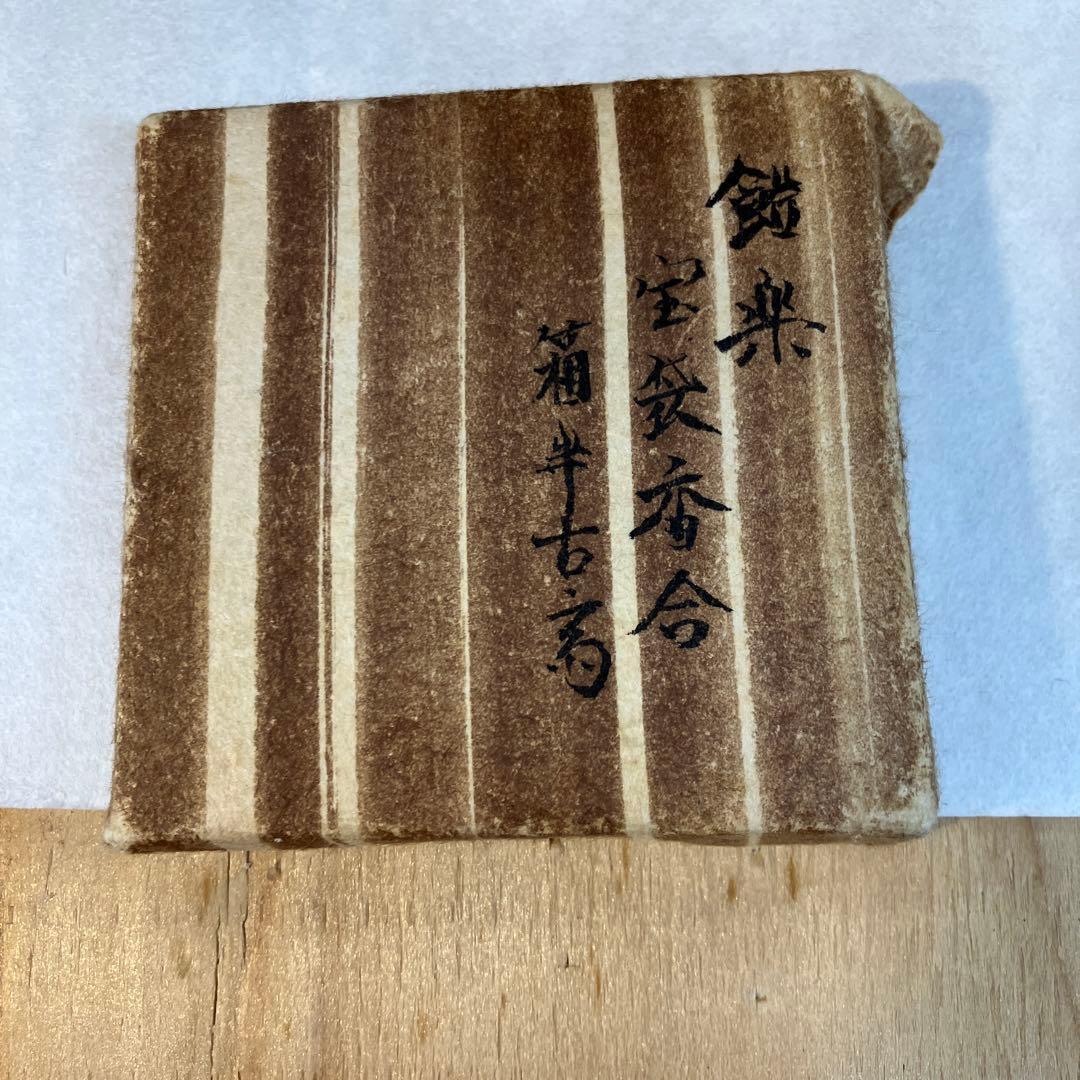 飴楽
宝袋香合
箱半古斎